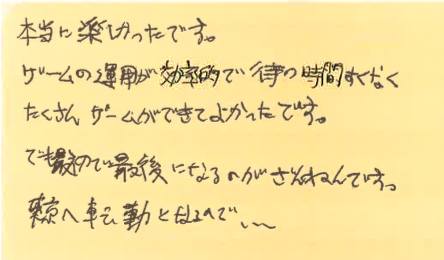 本当に楽しかったです。
ゲームの運用が効率的で待つ時間すくなく
たくさんゲームができてよかったです。
で最後になるのがざんねんです。
東京へ転勤となるので、、、